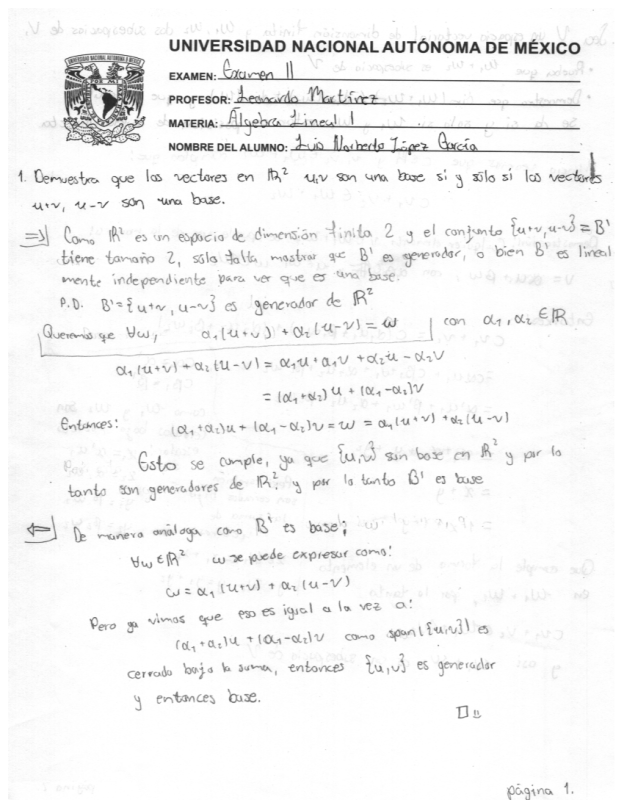 UNIVERSIDAD NACIONAL AUTÓNOMA DE MÉXICO
EXAMEN: Examen II
PROFESOR: Leonardo Martínez
MATERIA: Álgebra Lineal I
NOMBRE DEL ALUMNO: Luis Norberto López García
1. Demuestra que los vectores en ℝ² u,v son una base si y sólo si los vectores
u+v, u-v son una base.
⇒) Como ℝ² es un espacio de dimensión finita 2 y el conjunto {u+v, u-v} = B'
tiene tamaño 2, sólo falta mostrar que B' es generador, o bien B' es lineal
mente independiente para ver que es una base.
P.D. B' = {u+v, u-v} es generador de ℝ²
Queremos que ∀w, α₁(u+v) + α₂(u-v) = w con α₁, α₂ ∈ ℝ
α₁(u+v) + α₂(u-v) = α₁u + α₁v + α₂u - α₂v
= (α₁+α₂)u + (α₁-α₂)v
Entonces: (α₁+α₂)u + (α₁-α₂)v = w = α₁(u+v) + α₂(u-v)
Esto se cumple, ya que {u,v} son base en ℝ² y por lo
tanto son generadores de ℝ², y por lo tanto B' es base
⇐) De manera análoga, como B' es base;
∀w ∈ ℝ² w se puede expresar como:
w = α₁(u+v) + α₂(u-v)
Pero ya vimos que eso es igual a la vez a:
(α₁+α₂)u + (α₁-α₂)v como span({u,v}) es
cerrado bajo la suma, entonces {u,v} es generador
y entonces base.
página 1.